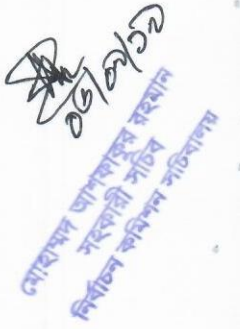 ০৩/০৭/১৩
মোহাম্মদ আশফাকুর রহমান
সহকারী সচিব
নির্বাচন কমিশন সচিবালয়